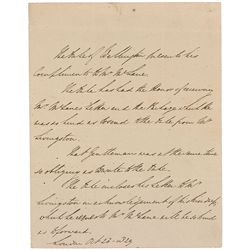 The Duke of Wellington presents his
Compliments to Mr McLane.
The Duke has had the Honor of receiving
Mr McLane's Letter and the Package which He
was so kind as to send the Duke from Mr
Livingston.
That Gentleman was at the same time
so obliging as to write to the Duke.
The Duke incloses his Letter to Mr
Livingston in acknowledgement of his kindness
which he requests Mr McLane will be so kind
as to forward.
London Oct 23